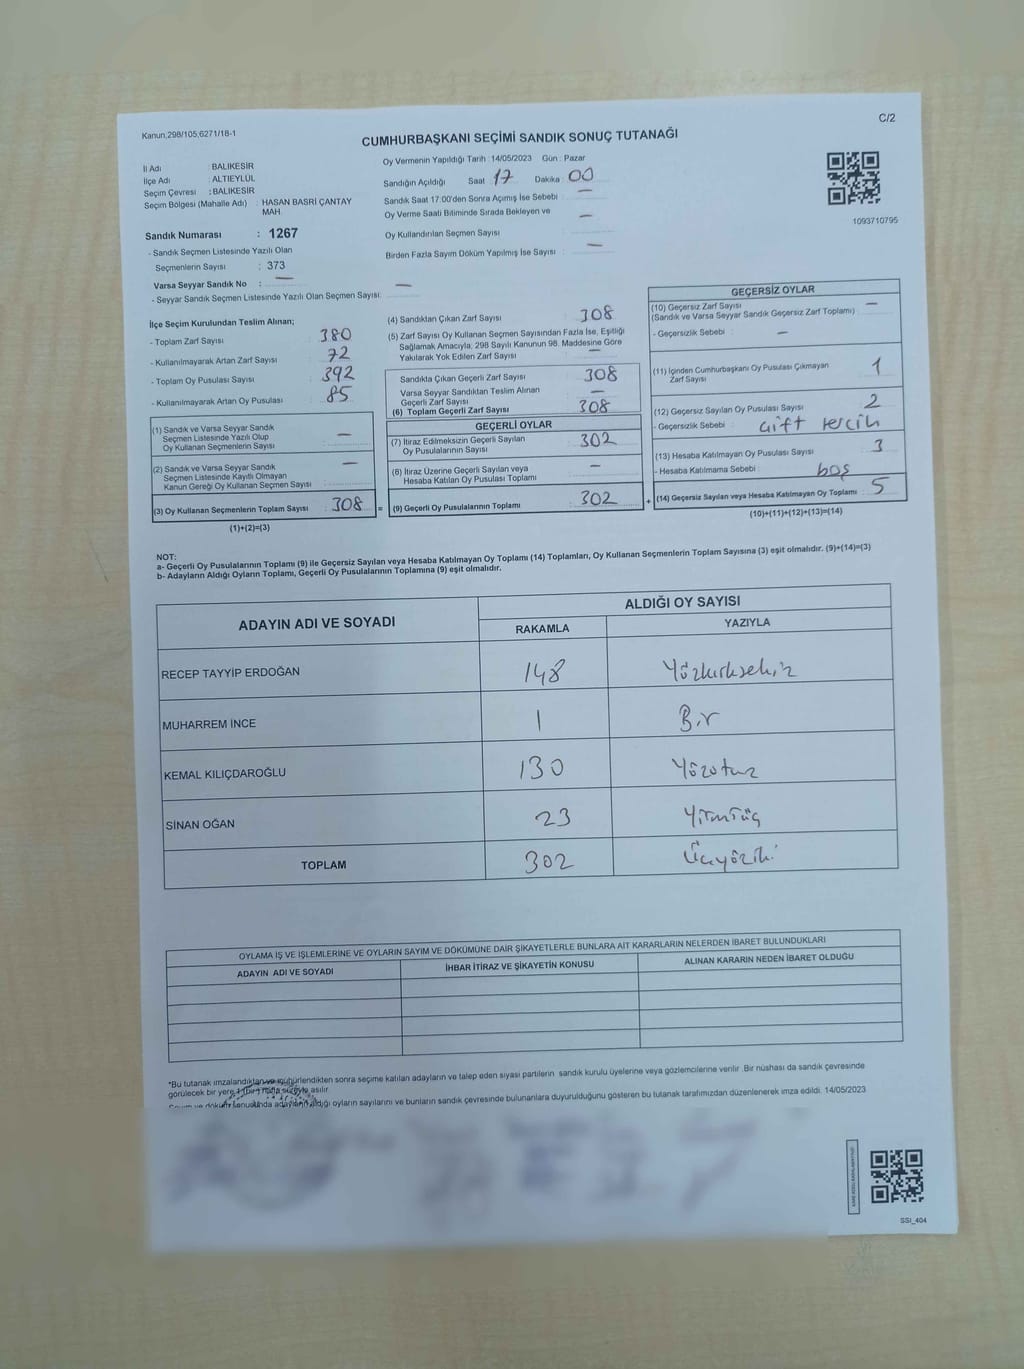 Kanun,298/105,6271/18-1
C/2
CUMHURBAŞKANI SEÇİMİ SANDIK SONUÇ TUTANAĞI
İl Adı : BALIKESİR
İlçe Adı : ALTIEYLÜL
Seçim Çevresi : BALIKESİR
Seçim Bölgesi (Mahalle Adı) : HASAN BASRİ ÇANTAY
MAH.
Sandık Numarası : 1267
- Sandık Seçmen Listesinde Yazılı Olan
Seçmenlerin Sayısı : 373
Varsa Seyyar Sandık No : —
- Seyyar Sandık Seçmen Listesinde Yazılı Olan Seçmen Sayısı: —
Oy Vermenin Yapıldığı Tarih : 14/05/2023 Gün : Pazar
Sandığın Açıldığı Saat 17 Dakika : 00
Sandık Saat 17:00'den Sonra Açımış İse Sebebi : —
Oy Verme Saati Bitiminde Sırada Bekleyen ve —
Oy Kullandırılan Seçmen Sayısı :
Birden Fazla Sayım Döküm Yapılmış İse Sayısı : —
1093710795
İlçe Seçim Kurulundan Teslim Alınan;
- Toplam Zarf Sayısı : 380
- Kullanılmayarak Artan Zarf Sayısı : 72
- Toplam Oy Pusulası Sayısı : 392
- Kullanılmayarak Artan Oy Pusulası : 85
(1) Sandık ve Varsa Seyyar Sandık
Seçmen Listesinde Yazılı Olup
Oy Kullanan Seçmenlerin Sayısı : —
(2) Sandık ve Varsa Seyyar Sandık
Seçmen Listesinde Kayıtlı Olmayan
Kanun Gereği Oy Kullanan Seçmen Sayısı : —
(3) Oy Kullanan Seçmenlerin Toplam Sayısı : 308 =
(1)+(2)=(3)
(4) Sandıktan Çıkan Zarf Sayısı : 308
(5) Zarf Sayısı Oy Kullanan Seçmen Sayısından Fazla İse, Eşitliği
Sağlamak Amacıyla; 298 Sayılı Kanunun 98. Maddesine Göre
Yakılarak Yok Edilen Zarf Sayısı : —
Sandıkta Çıkan Geçerli Zarf Sayısı : 308
Varsa Seyyar Sandıktan Teslim Alınan
Geçerli Zarf Sayısı : —
(6) Toplam Geçerli Zarf Sayısı : 308
GEÇERLİ OYLAR
(7) İtiraz Edilmeksizin Geçerli Sayılan
Oy Pusulalarının Sayısı : 302
(8) İtiraz Üzerine Geçerli Sayılan veya
Hesaba Katılan Oy Pusulası Toplamı : —
(9) Geçerli Oy Pusulalarının Toplamı : 302 +
GEÇERSİZ OYLAR
(10) Geçersiz Zarf Sayısı
(Sandık ve Varsa Seyyar Sandık Geçersiz Zarf Toplamı) : —
- Geçersizlik Sebebi : —
(11) İçinden Cumhurbaşkanı Oy Pusulası Çıkmayan
Zarf Sayısı : 1
(12) Geçersiz Sayılan Oy Pusulası Sayısı : 2
- Geçersizlik Sebebi : Çift tercih
(13) Hesaba Katılmayan Oy Pusulası Sayısı : 3
- Hesaba Katılmama Sebebi : boş
(14) Geçersiz Sayılan veya Hesaba Katılmayan Oy Toplamı : 5
(10)+(11)+(12)+(13)=(14)
NOT:
a- Geçerli Oy Pusulalarının Toplamı (9) ile Geçersiz Sayılan veya Hesaba Katılmayan Oy Toplamı (14) Toplamları, Oy Kullanan Seçmenlerin Toplam Sayısına (3) eşit olmalıdır. (9)+(14)=(3)
b- Adayların Aldığı Oyların Toplamı, Geçerli Oy Pusulalarının Toplamına (9) eşit olmalıdır.
ADAYIN ADI VE SOYADI
ALDIĞI OY SAYISI
RAKAMLA YAZIYLA
RECEP TAYYİP ERDOĞAN 148 Yüzkırksekiz
MUHARREM İNCE 1 Bir
KEMAL KILIÇDAROĞLU 130 Yüzotuz
SİNAN OĞAN 23 Yirmiüç
TOPLAM 302 Üçyüziki
OYLAMA İŞ VE İŞLEMLERİNE VE OYLARIN SAYIM VE DÖKÜMÜNE DAİR ŞİKAYETLERLE BUNLARA AİT KARARLARIN NELERDEN İBARET BULUNDUKLARI
ADAYIN ADI VE SOYADI İHBAR İTİRAZ VE ŞİKAYETİN KONUSU ALINAN KARARIN NEDEN İBARET OLDUĞU
*Bu tutanak imzalandıktan ve mühürlendikten sonra seçime katılan adayların ve talep eden siyasi partilerin sandık kurulu üyelerine veya gözlemcilerine verilir. Bir nüshası da sandık çevresinde
görülecek bir yere 1 (bir) hafta süreyle asılır.
Sayım ve döküm sonucunda adayların aldığı oyların sayılarını ve bunların sandık çevresinde bulunanlara duyurulduğunu gösteren bu tutanak tarafımızdan düzenlenerek imza edildi. 14/05/2023
SSI_404